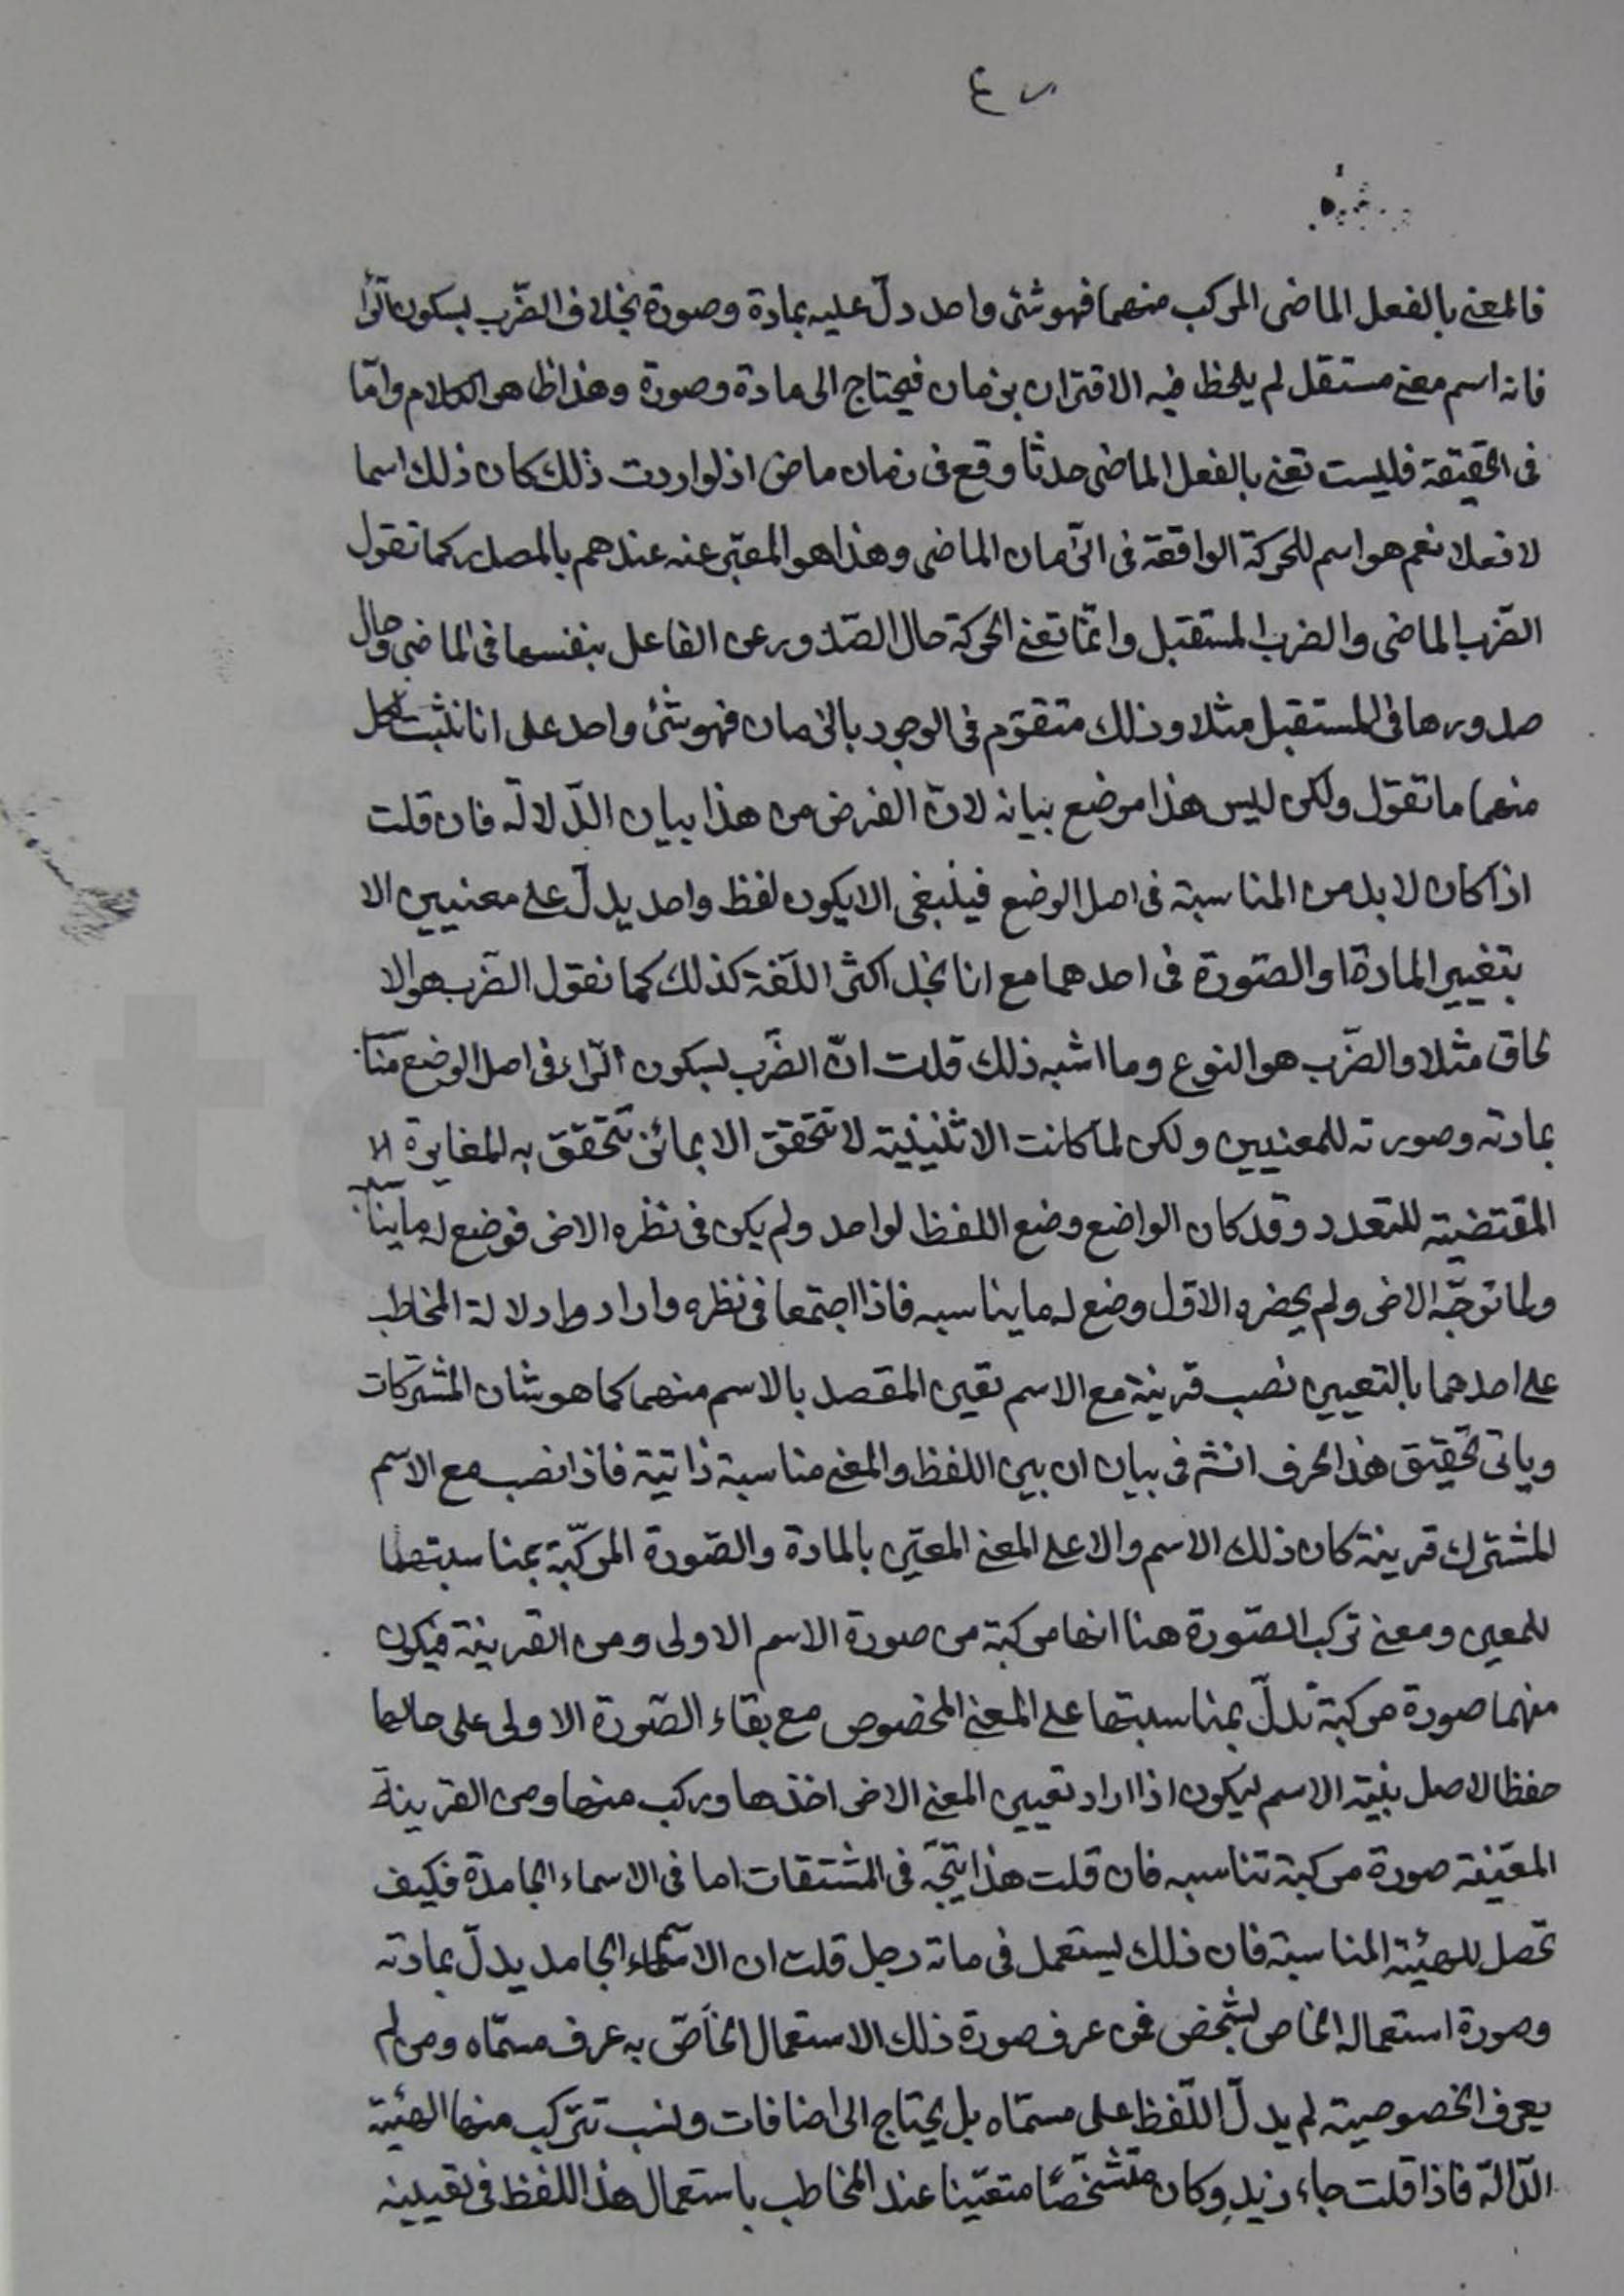 فالمعنى بالفعل الماضى المركب منهما فهو شئ واحد دلّ عليه بمادة وصورة بخلاف الضّرب بسكون الرّا
فانه اسم معنى مستقل لم يلحظ فيه الاقتران بزمان فيحتاج الى مادة وصورة وهذا ظاهر الكلام وامّا
فى الحقيقة فليست تعنى بالفعل الماضى حدثا وقع فى زمان ماض اذ لو اردت ذلك كان ذلك اسما
لا فعلا نعم هو اسم للحركة الواقعة فى الزّمان الماضى وهذا هو المعبّر عنه عندهم بالمصدر كما تقول
الضّرب الماضى والضرب المستقبل وانّما تعنى الحركة حال الصّدور عن الفاعل بنفسها فى الماضى وحال
صدورها فى المستقبل مثلا وذلك متقوّم فى الوجود بالزمان فهو شئ واحد على انا نثبت لكل
منهما ما تقول ولكن ليس هذا موضع بيانه لانّ الغرض من هذا بيان الدّلالة فان قلت
اذا كان لا بد من المناسبة فى اصل الوضع فينبغى الا يكون لفظ واحد يدلّ على معنيين الا
بتغيير المادة او الصّورة فى احدهما مع انا نجد اكثر اللّغة كذلك كما نقول الضّرب هو الا
لحاق مثلا والضّرب هو النوع وما اشبه ذلك قلت انّ الضَّرب بسكون الرّاء فى اصل الوضع مناسب
بمادته وصورته للمعنيين ولكن لما كانت الاثنينية لا تتحقق الا بمائز تتحقق به المغايرة الا
المقتضية للتعدد وقد كان الواضع وضع اللفظ لواحد ولم يكن فى نظره الاخر فوضع له ما يناسبه
ولما توجّه الاخر ولم يحضره الاول وضع له ما يناسبه فاذا اجتمعا فى نظره واراد دلالة المخاطب
على احدهما بالتعيين نصب قرينة مع الاسم تعين المقصد بالاسم منهما كما هو شان المشتركات
وياتى تحقيق هذا الحرف انشم فى بيان ان بين اللفظ والمعنى مناسبة ذاتية فاذا نصب مع الاسم
المشترك قرينة كان ذلك الاسم دالا على المعنى المعيّن بالمادة والصّورة المركّبة بمناسبتهما
للمعين ومعنى تركب الصّورة هنا انها مركبة من صورة الاسم الاولى ومن القرينة فيكون
منهما صورة مركبة تدلّ بمناسبتها على المعنى المخصوص مع بقاء الصّورة الاولى على حالها
حفظا لاصل بنية الاسم ليكون اذا اراد تعيين المعنى الاخر اخذها وركب منها ومن القرينة
المعيّنة صورة مركبة تناسبه فان قلت هذا يتجّه فى المشتقات اما فى الاسماء الجامدة فكيف
تحصل للهيئة المناسبة فان ذلك يستعمل فى مائة رجل قلت ان الاسماء الجامد يدلّ بمادته
وصورة استعماله الخاص لشخص فمن عرف صورة ذلك الاستعمال الخاصّ به عرف مسمّاه ومن لم
يعرف الخصوصية لم يدلّ اللّفظ على مسمّاه بل يحتاج الى اضافات ونسب تتركب منها الهيئة
الدّالّة فاذا قلت جاء زيد وكان متشخّصًا متعيّنا عند المخاطب باستعمال هذا اللفظ فى تعيينه